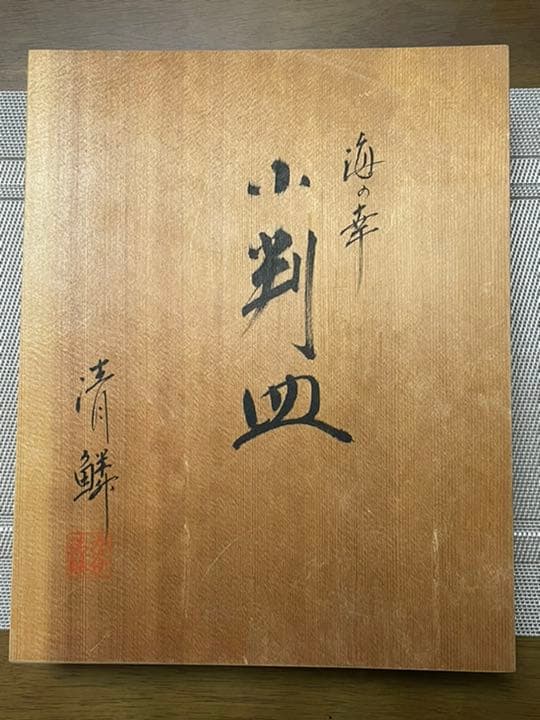 海の幸
小判皿
清鱗